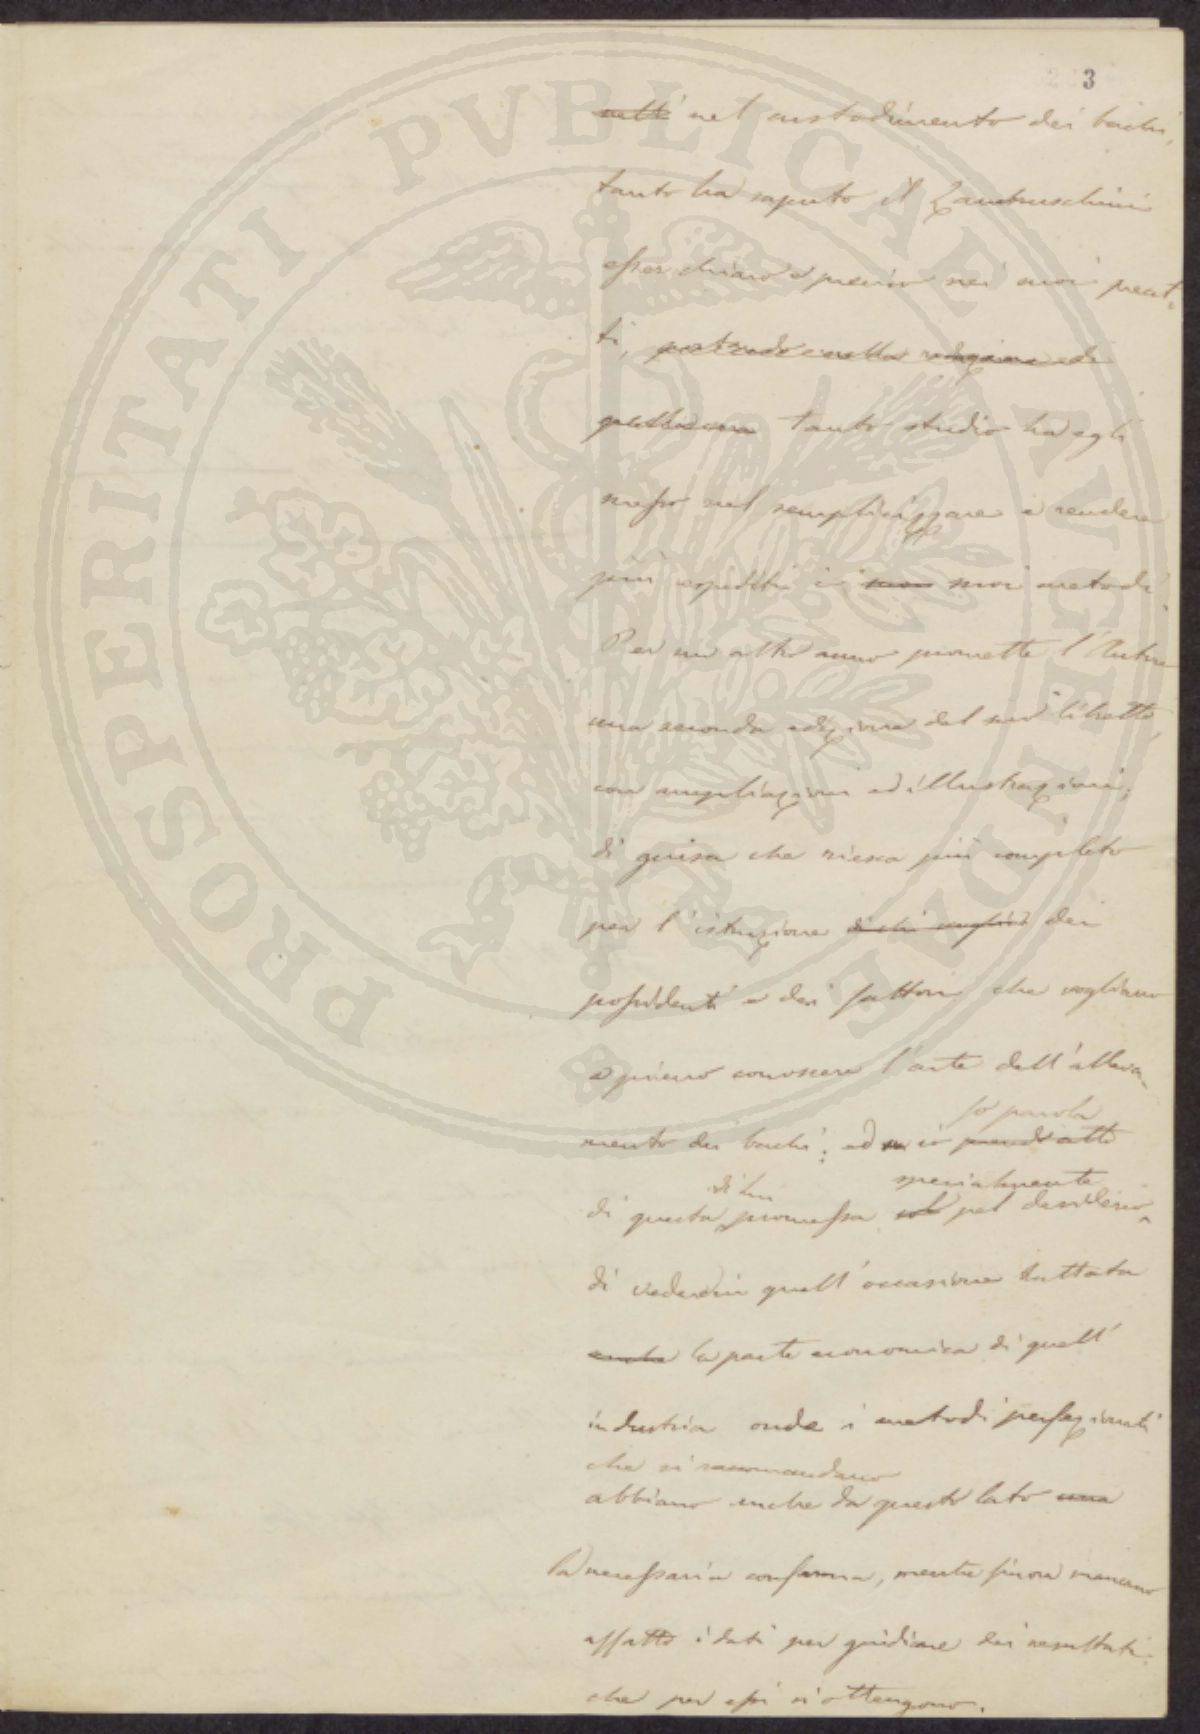 3
nell' nel custodimento dei bachi,
tanto ha saputo il Lambruschini
esser chiaro e preciso nei suoi precet-
ti, nella redazione di
tanto studio ha egli
messo nel semplicizzare e rendere
più espediti i suoi metodi.
Per un altro anno promette l'Autore
una seconda edizione del suo libretto,
con ampliazioni ed illustrazioni,
di guisa che riesca più completo
per l'istruzione di chi voglia dei
possidenti e dei fattori che vogliano
appieno conoscere l'arte dell'alleva-
fo parola
mento dei bachi; ed io prendo atto
di lui specialmente
di questa promessa sol pel desiderio
di vedere in quell'occasione trattata
anche la parte economica di quell'
industria onde i metodi perfezionati
che si raccomandano
abbiano anche da questo lato una
la necessaria conferma, mentre finora mancano
affatto i dati per giudicare dei resultati
che per essi si ottengono.
PROSPERITATI PVBLICAE AVGENDAE